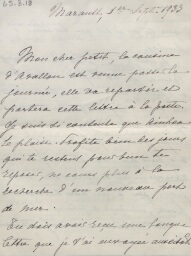 65.3.18
1er 1933
Mon cher petit, la cousine
d'Avallon est venue passer la
journée, elle va repartir et
portera cette lettre à la poste.
Je suis si contente que
te plaise. Profite bien les jours
qui te restent pour bien te
reposer, ne cours plus à la
recherche d'un nouveau port
de mer.
Tu dois avoir reçu une longue
lettre que je t'ai envoyée